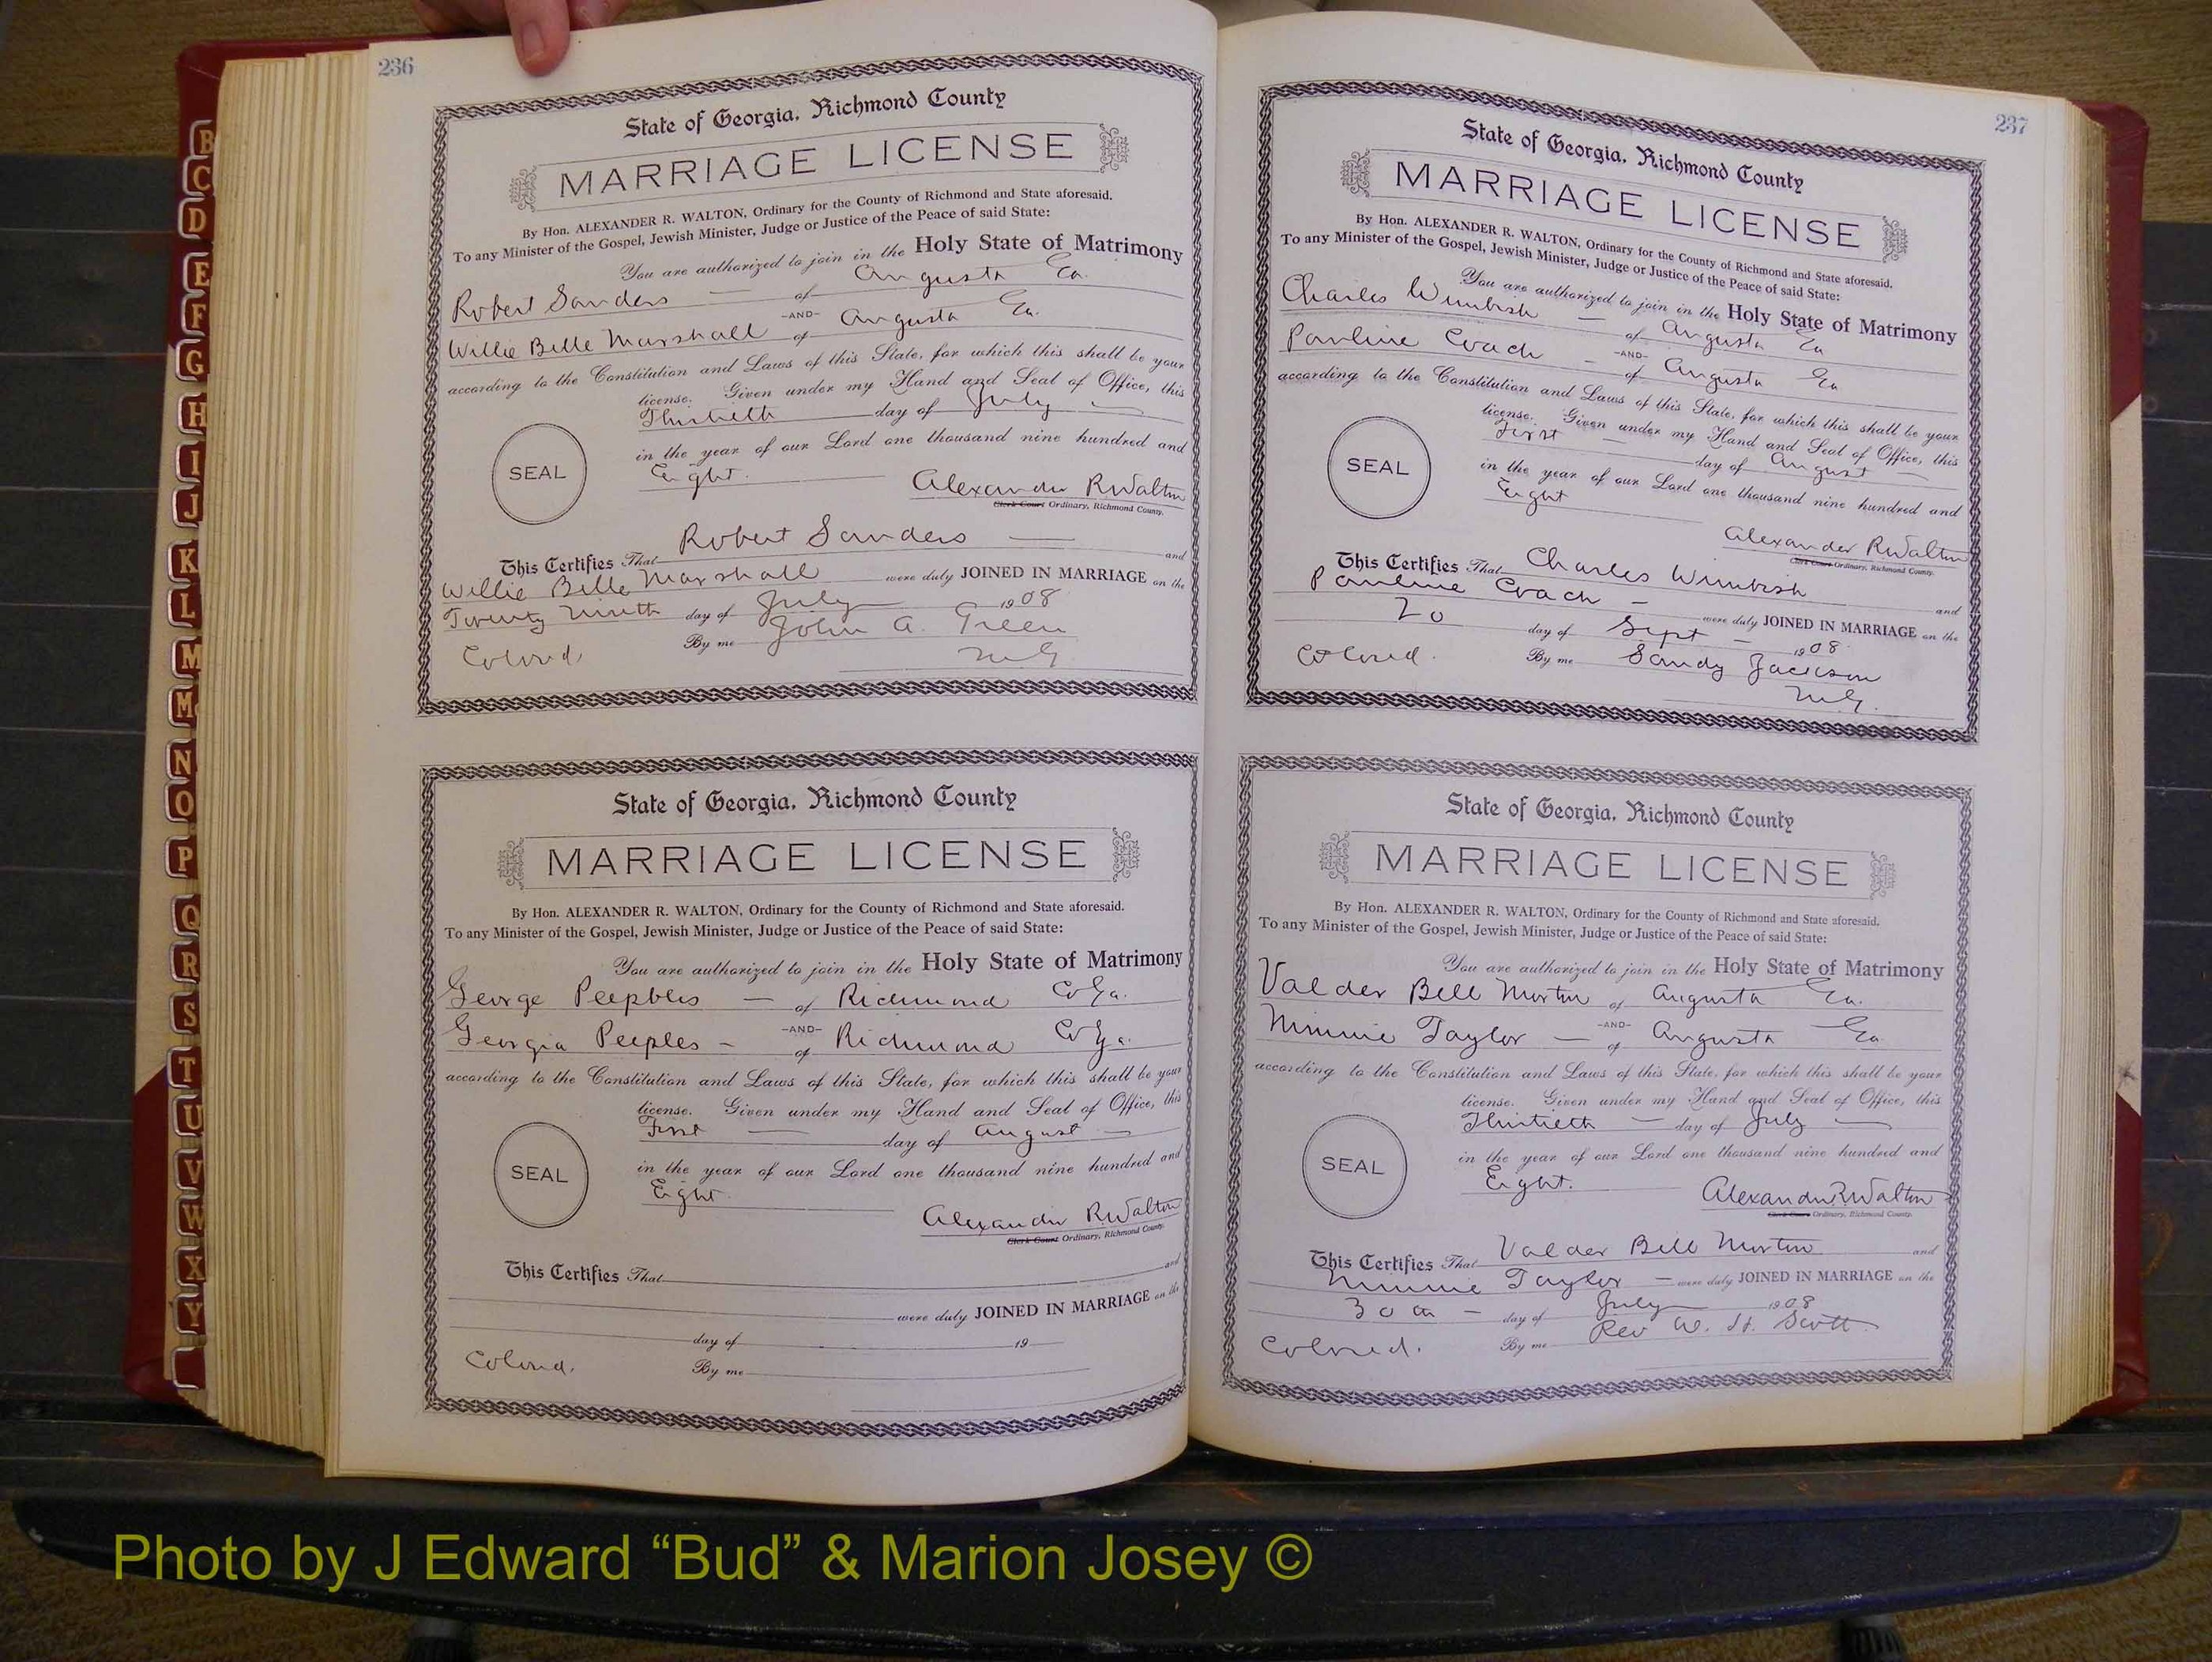 236
State of Georgia, Richmond County
MARRIAGE LICENSE
By Hon. ALEXANDER R. WALTON, Ordinary for the County of Richmond and State aforesaid.
To any Minister of the Gospel, Jewish Minister, Judge or Justice of the Peace of said State:
You are authorized to join in the Holy State of Matrimony
Robert Sanders — of Augusta Ga.
-AND-
Willie Belle Marshall of Augusta Ga.
according to the Constitution and Laws of this State, for which this shall be your
license. Given under my Hand and Seal of Office, this
Thirtieth day of July —
in the year of our Lord one thousand nine hundred and
SEAL
Eight.
Alexander R Walton
Clerk Court Ordinary, Richmond County.
This Certifies That Robert Sanders — and
Willie Belle Marshall were duly JOINED IN MARRIAGE on the
Twenty Ninth day of July 1908
Colored By me John A. Green
M G
State of Georgia, Richmond County
MARRIAGE LICENSE
By Hon. ALEXANDER R. WALTON, Ordinary for the County of Richmond and State aforesaid.
To any Minister of the Gospel, Jewish Minister, Judge or Justice of the Peace of said State:
You are authorized to join in the Holy State of Matrimony
George Peepbles — of Richmond Co Ga.
-AND-
Georgia Peeples — of Richmond Co Ga.
according to the Constitution and Laws of this State, for which this shall be your
license. Given under my Hand and Seal of Office, this
First — day of August —
in the year of our Lord one thousand nine hundred and
SEAL
Eight.
Alexander R Walton
Clerk Court Ordinary, Richmond County.
This Certifies That and
were duly JOINED IN MARRIAGE on the
day of 19
Colored. By me
237
State of Georgia, Richmond County
MARRIAGE LICENSE
By Hon. ALEXANDER R. WALTON, Ordinary for the County of Richmond and State aforesaid.
To any Minister of the Gospel, Jewish Minister, Judge or Justice of the Peace of said State:
You are authorized to join in the Holy State of Matrimony
Charles Wimbish — of Augusta Ga
-AND-
Pauline Coach — of Augusta Ga
according to the Constitution and Laws of this State, for which this shall be your
license. Given under my Hand and Seal of Office, this
First — day of August
in the year of our Lord one thousand nine hundred and
SEAL
Eight
Alexander R Walton
Clerk Court Ordinary, Richmond County.
This Certifies That Charles Wimbish and
Pauline Coach — were duly JOINED IN MARRIAGE on the
20 day of Sept — 1908
Colored. By me Sandy Jackson
M G.
State of Georgia, Richmond County
MARRIAGE LICENSE
By Hon. ALEXANDER R. WALTON, Ordinary for the County of Richmond and State aforesaid.
To any Minister of the Gospel, Jewish Minister, Judge or Justice of the Peace of said State:
You are authorized to join in the Holy State of Matrimony
Valder Bell Morton of Augusta Ga.
-AND-
Minnie Taylor — of Augusta Ga
according to the Constitution and Laws of this State, for which this shall be your
license. Given under my Hand and Seal of Office, this
Thirtieth — day of July —
in the year of our Lord one thousand nine hundred and
SEAL
Eight.
Alexander R Walton
Clerk Court Ordinary, Richmond County.
This Certifies That Valder Bell Morton and
Minnie Taylor — were duly JOINED IN MARRIAGE on the
30th — day of July 1908
Colored. By me Rev W. H. Scott
B
C
D
E
F
G
H
I
J
K
L
M
Mc
N
O
P
Q
R
S
T
U
V
W
X
Y
Photo by J Edward “Bud” & Marion Josey ©